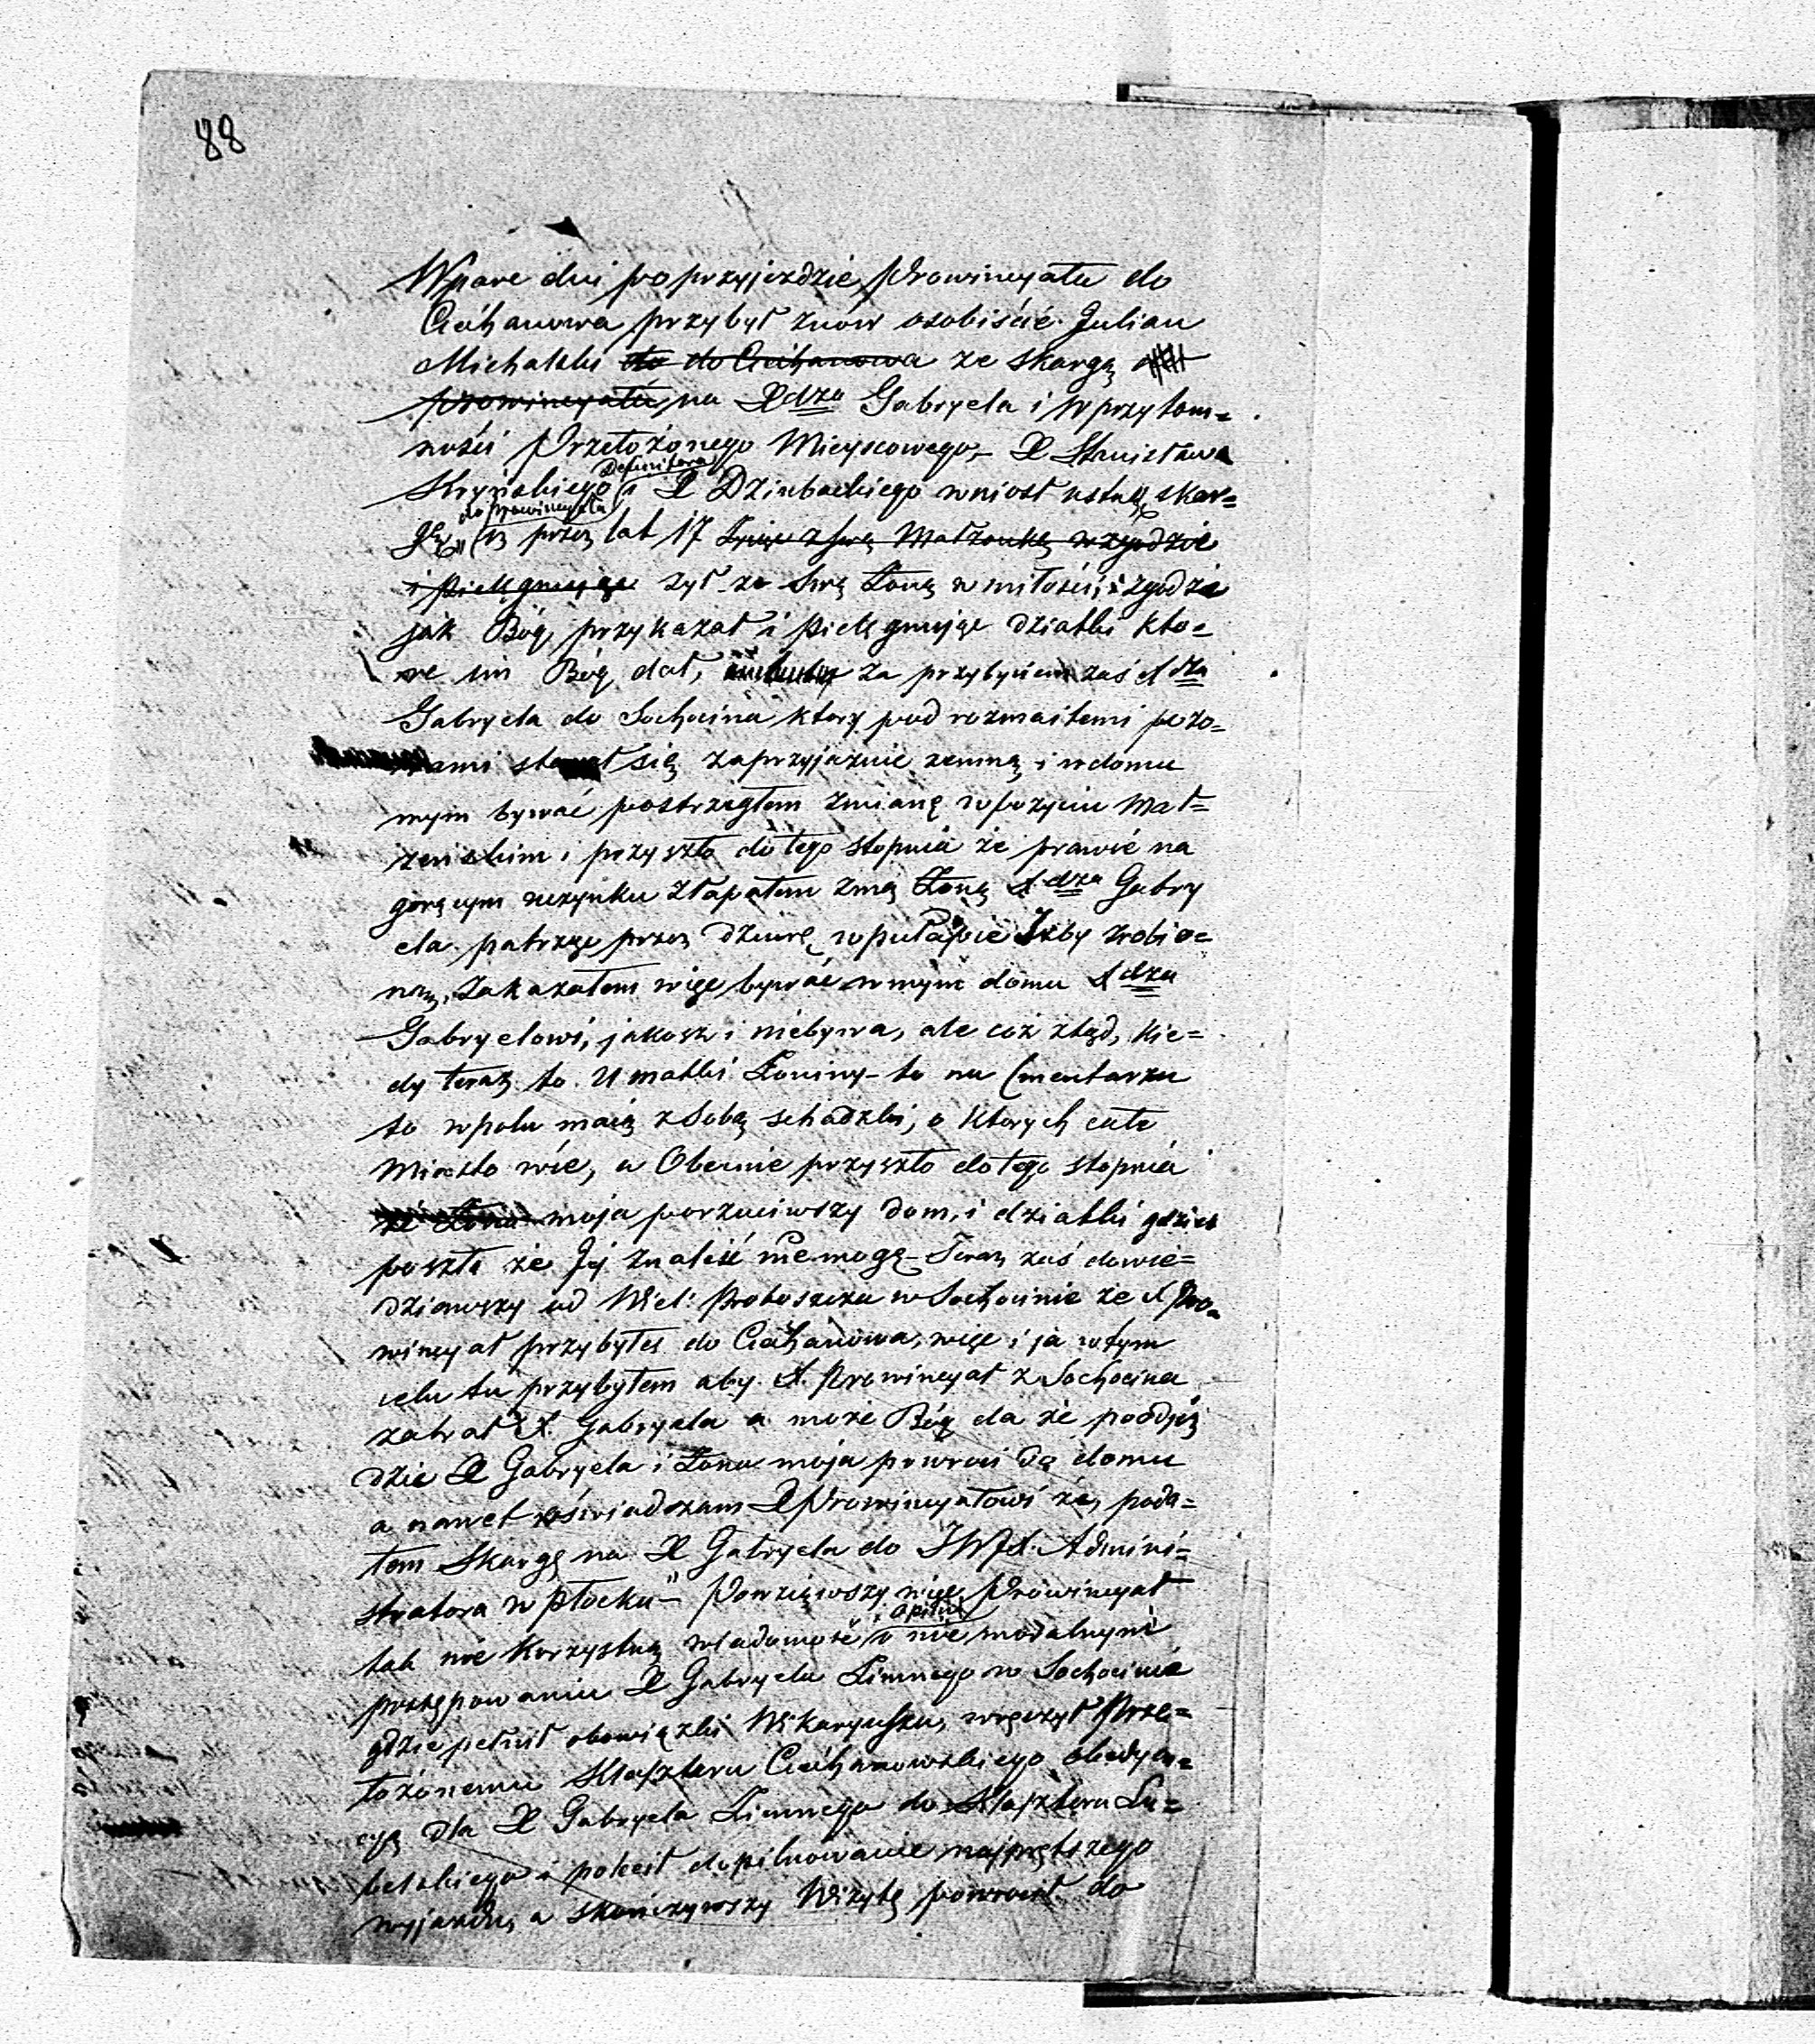 88
W pare dni po przyjezdzie Prowincyała do
Ciechanowa przybył znów osobiście Julian
Michalski do do Ciechanowa ze skargą
prowincyała na Xdza Gabryela i w przytom=
ności Przełożonego Miejscowego X Stanisława
Definitora
Skrynskiego i X Dziubackiego wniosł ustną skar=
do Prowincyała
gę „iż przez lat 17 żyjąc z swą Małżonką w zgodzie
i pielęgnując żył ze swą Żoną w miłości i zgodzie
jak Bóg przykazał i pielęgnując dziatki kto=
re im Bóg dał, za przybyciem zaś Xdza
Gabryela do Sochocina ktory pod rozmaitemi pozo=
rami starał się zaprzyjaznić zemną i w domu
mym bywać postrzegłem zmianę w pożyciu Mał=
żenskim i przyszło do tego stopnia że prawie na
gorącym uczynku złapałem z mą Żoną Xdza Gabry
ela patrząc przez dziurę w pułapie Izby zrobio=
ną, Zakazałem więc bywać w mym domu Xdzu
Gabryelowi, jakosz i niebywa, ale coż ztąd, kie=
dy teraz to u matki Żoniny – to na Cmentarzu
to w polu maią z sobą schadzki, o ktorych całe
Miasto wie, a Obecnie przyszło do tego stopnia
że Żona moja porzuciwszy dom, i dziatki gdzieś
poszła że Jej znaleść niemogę – Teraz zaś dowie=
dziawszy od Wiel: Proboszcza w Sochocinie że X Pro=
wincyał przybyłeś do Ciechanowa, więc i ja w tym
celu tu przybyłem aby X. Prowincyał z Sochocina
zabrał X. Gabryela a może Bóg da że po odyj=
dzie X Gabryela i Żona moja powroci do domu
a nawet oświadczam X Prowincyałowi że poda=
łem skargę na X Gabryela do JWX. Admini=
stratora w Płocku” – Powziąwszy więc Prowincyał
opilui
tak nie korzystną wiadomość o nie moralnym
postępowaniu X Gabryela Zimnego w Sochocinie
gdzie pełnił obowiązki Wikaryusza, wręczył Prze=
łożonemu Klasztoru Ciechanowskiego obedyen=
cyą dla X Gabryela Zimnego do Klasztoru Lu=
belskiego i polecił dopilnowanie najprętszego
wyjazdu, a skończywszy Wizytę powrocił do